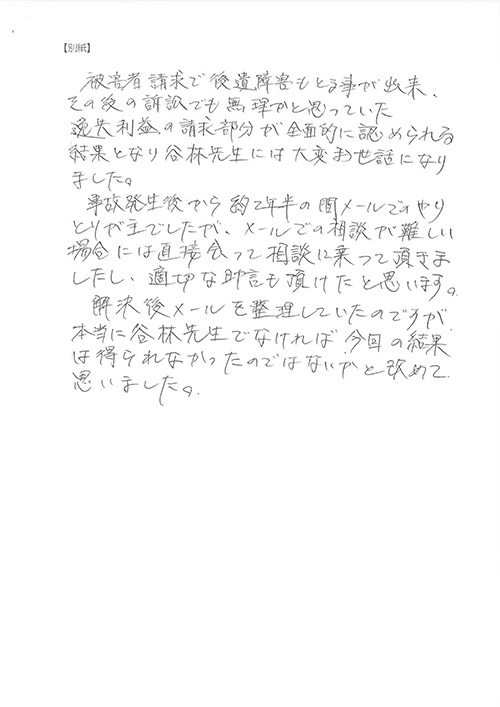 【別紙】
被害者請求で後遺障害もとる事が出来、
その後の訴訟でも無理かと思っていた
逸失利益の請求部分が全面的に認められる
結果となり谷林先生には大変お世話になり
ました。
事故発生後から約2年半の間メールでのやり
とりが主でしたが、メールでの相談が難しい
場合には直接会って相談に乗って頂きま
したし、適切な助言も頂けたと思います。
解決後メールを整理していたのですが、
本当に谷林先生でなければ今回の結果
は得られなかったのではないかと改めて
思いました。